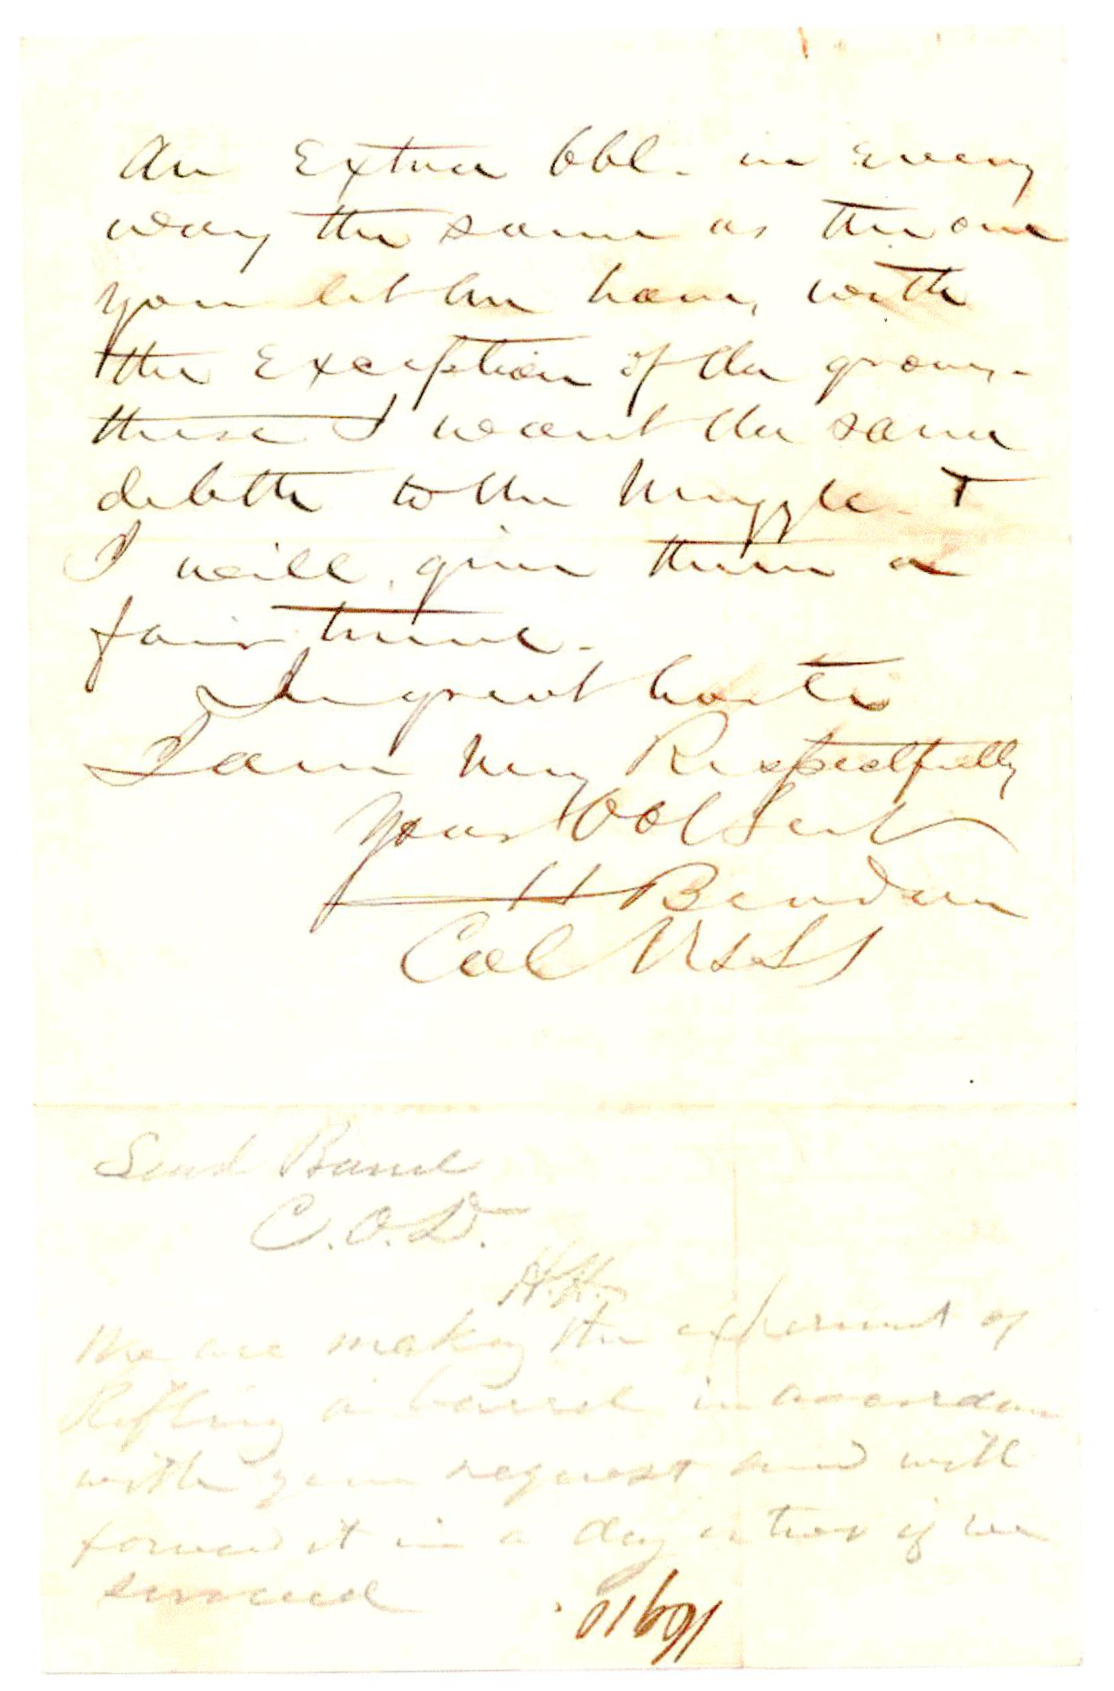 An Extra bbl. in Every
way the same as the one
you let me have, with
the Exception of the groove.
these I want the same
debth to the Muzzle. &
I will give them a
fair trial.
In great haste
I am Very Respectfully
Your Obt Servt
H Berdan
Col USSS
Send Barrel
C.O.D.
H.H.
We are making the experiment of
Rifling a barrel in accordance
with your request and will
forward it in a day or two if we
succeed
16910